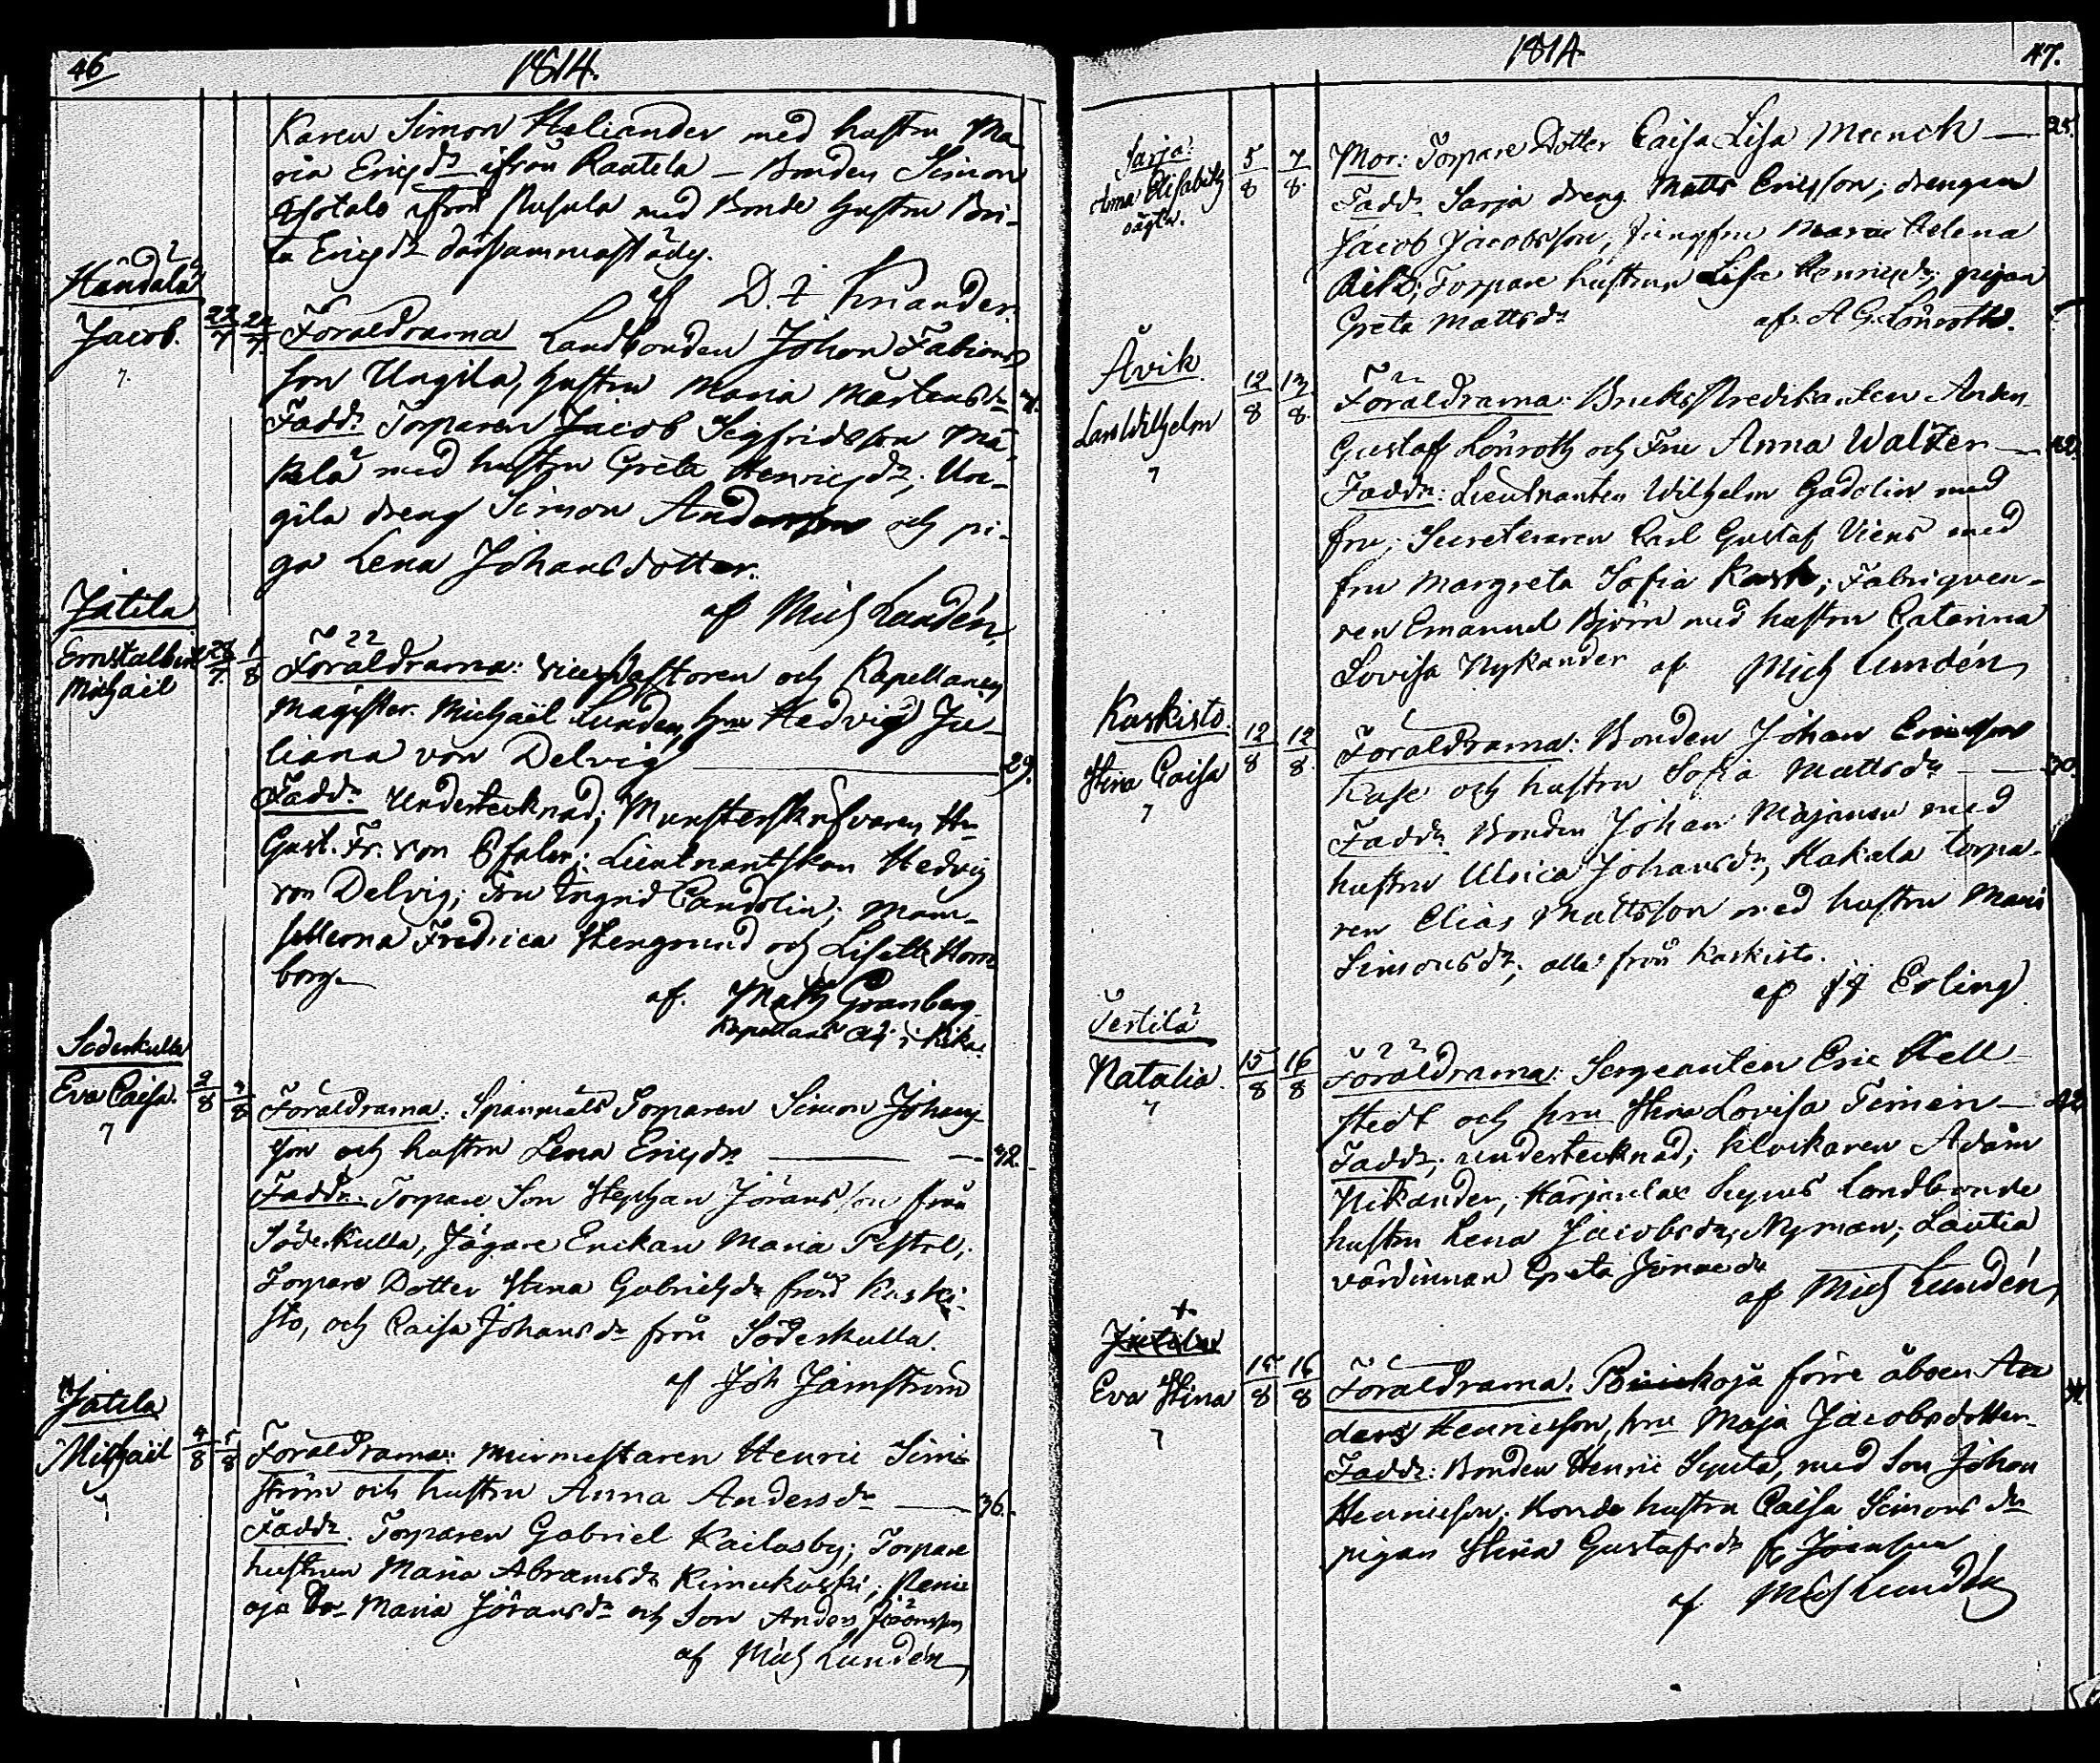 46
1814.
Karen Simon Heliander med hustru Ma
ria Ericsdr ifrån Raatela — Bonden Simon
ifrån Pusula med Bonde hustru Bri-
ta Ericsdr därsammastädes.
af D. Knander.
Händälä
Jacob. 22/7 24/7 Föräldrarna Landbonden Johan Fabians
7.
son Ungila, hustru Maria Mårtensdr
Faddr Torparen Jacob Sigfridsson Mä
kelä med hustru Greta Henricsdr; Un-
gila dreng Simon Andersson och pi-
ga Lena Johansdotter.
af Mich Lundén,
Jätila
Ernst Albin Michaël 28/7 1/8 Föräldrarna: Vice Pastoren och Kapellanen
Magister Michaël Lundén, hru Hedvig Ju-
liana von Delvig — 29.
Faddr Undertecknad; Munsterskrifvaren Hr
Gust. Fr. von Pfaler; Lieutnantskan Hedvig
von Delvig; Fru Ingrid Candolin; Mam-
sellerna Fredrica Stengrund och Lisette Horn
borg.
af. Math Granberg
Kapellans Adj. i Kika.
Söderkulla
Eva Caisa. 2/8 3/8 Föräldrarna: Spanmäls Torparen Simon Johans
7
son och hustru Lena Ericsdr — 32.
Faddr. Torpare Son Stephan Jöransson från
Söderkulla, Jägare Enkan Maria Pistol;
Torpare Dotter Stina Gabrielsdr från Kaski-
sto, och Caisa Johansdr från Söderkulla.
af Joh Jarnström
Jätila
Michaël 4/8 5/8 Föräldrarna: Murmestaren Henric Sim
7
ström och hustru Anna Andersdr — 36.
Faddr. Torparen Gabriel Kailasby; Torpare
hustrun Maria Abramsdr
oja Maria Jöransdr och Son Anders Jöransson
af Mich Lundén
1814.
47.
Sarja.
Anna Elisabeth 5/8 7/8 Mor: Torpare Dotter Caisa Lisa Munck — 25.
oägta.
Faddr Sarja dreng Matts Ericsson; drengen
Jacob Jacobsson, Jungfru Maria Helena
Torpare hustrun Lisa Henricsdr; pigan
Greta Mattsdr af A G. Lönroth.
Åvik
Lars Wilhelm 12/8 13/8 Föräldrarna: Bruks Predikanten Anders
7
Gustaf Lönroth och Fru Anna Walter —
Faddr: Lieutnanten Wilhelm Gadolin med
fru; Secreteraren Carl Gustaf Viens med
fru Margreta Sofia Rask; Fabriqueu-
ren Emanuel Björn med hustru Catarina
Lovisa Nykander af Mich Lundén
Kaskisto.
Stina Caisa 12/8 12/8 Föräldrarna: Bonden Johan Ericsson
7
Kase och hustru Sofia Mattsdr — 30.
Faddr. Bonden Johan Majanen med
hustru Ulrica Johansdr; Kakola torpa-
ren Elias Mattsson med hustru Maria
Simonsdr; alla från Kaskisto.
af JJ Erling
Jertilä
Natalia. 15/8 16/8 Föräldrarna: Sergeanten Eric Hell
7
stedt och hru Stina Lovisa Timén — 42
Faddr; undertecknad; klockaren Adam
Nikander, Härjanlax Sugnes Landbonde
hustru Lena Jacobsdr, Nyman; Lautia
värdinnan Greta
af Mich Lundén
Jätila
Eva Stina 15/8 16/8 Föräldrarna: förre åboen An
7
ders Henricsson, hru Maja Jacobsdotter
Faddr: Bonden Henric med Son Johan
Henricsson; Bonde hustru Caisa Simonsdr
pigan Stina Gustafsdr
af Mich Lundén